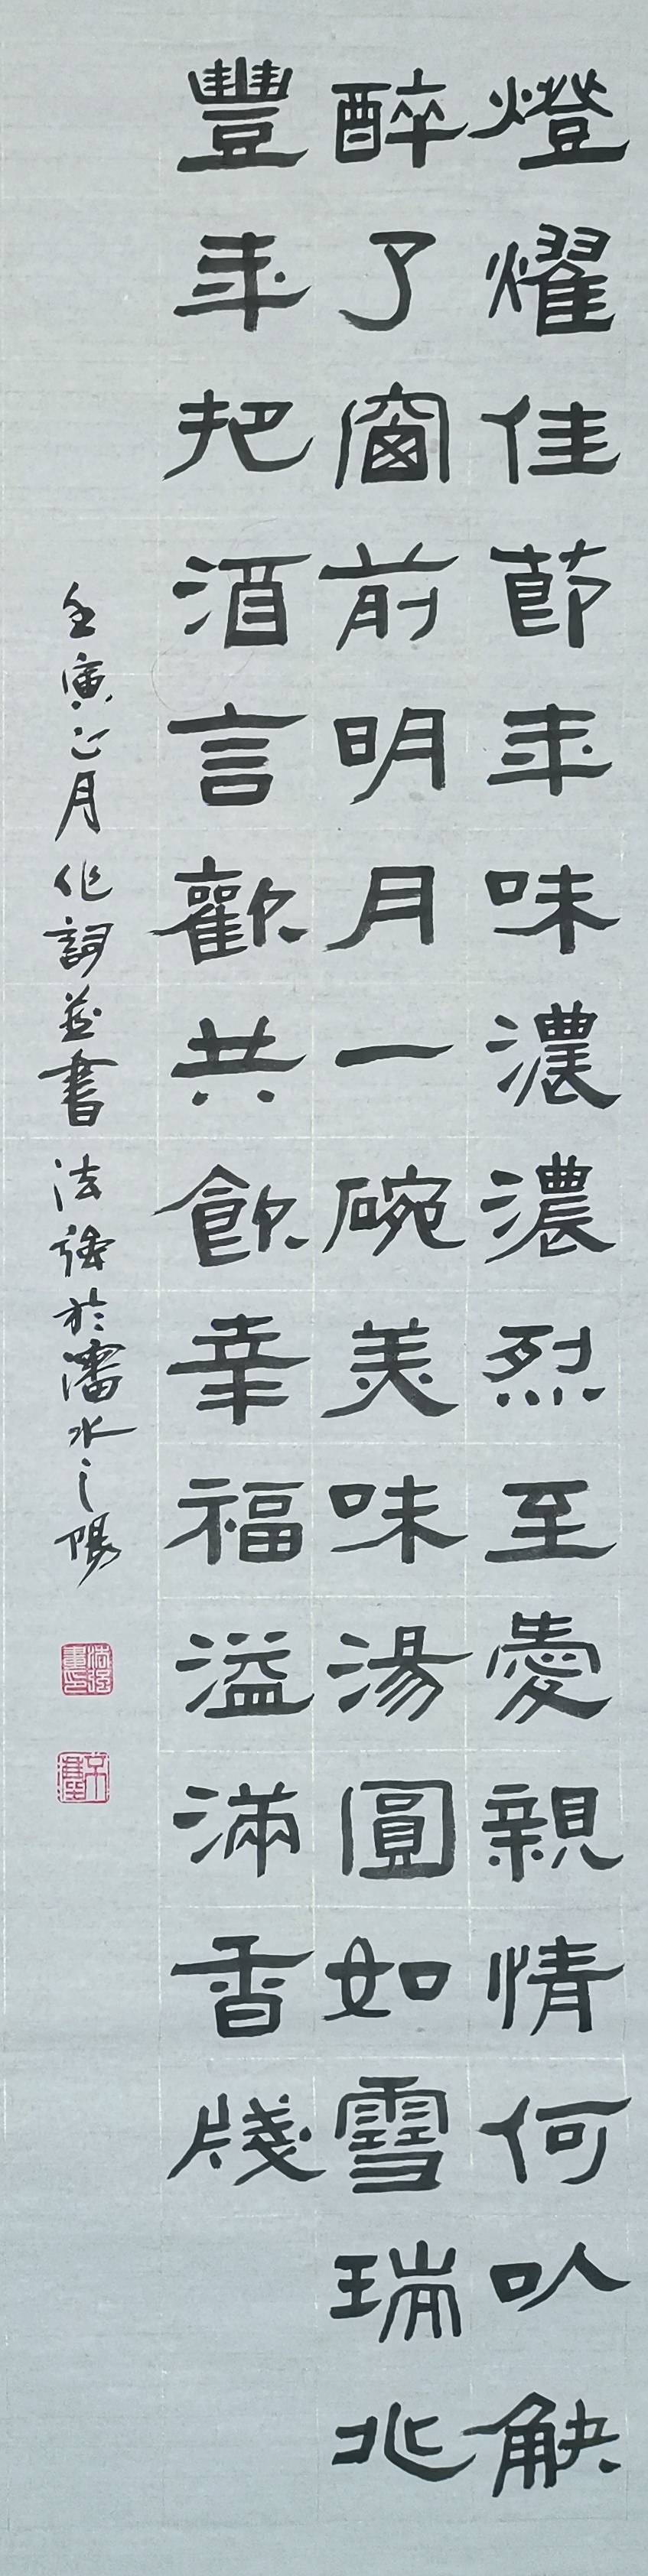 燈耀佳節年味濃濃烈至愛親情何以觖
醉了窗前明月一碗美味湯圓如雪瑞兆
豐年把酒言歡共飲幸福溢滿香牋
壬寅正月作詞並書法強於瀋水之陽